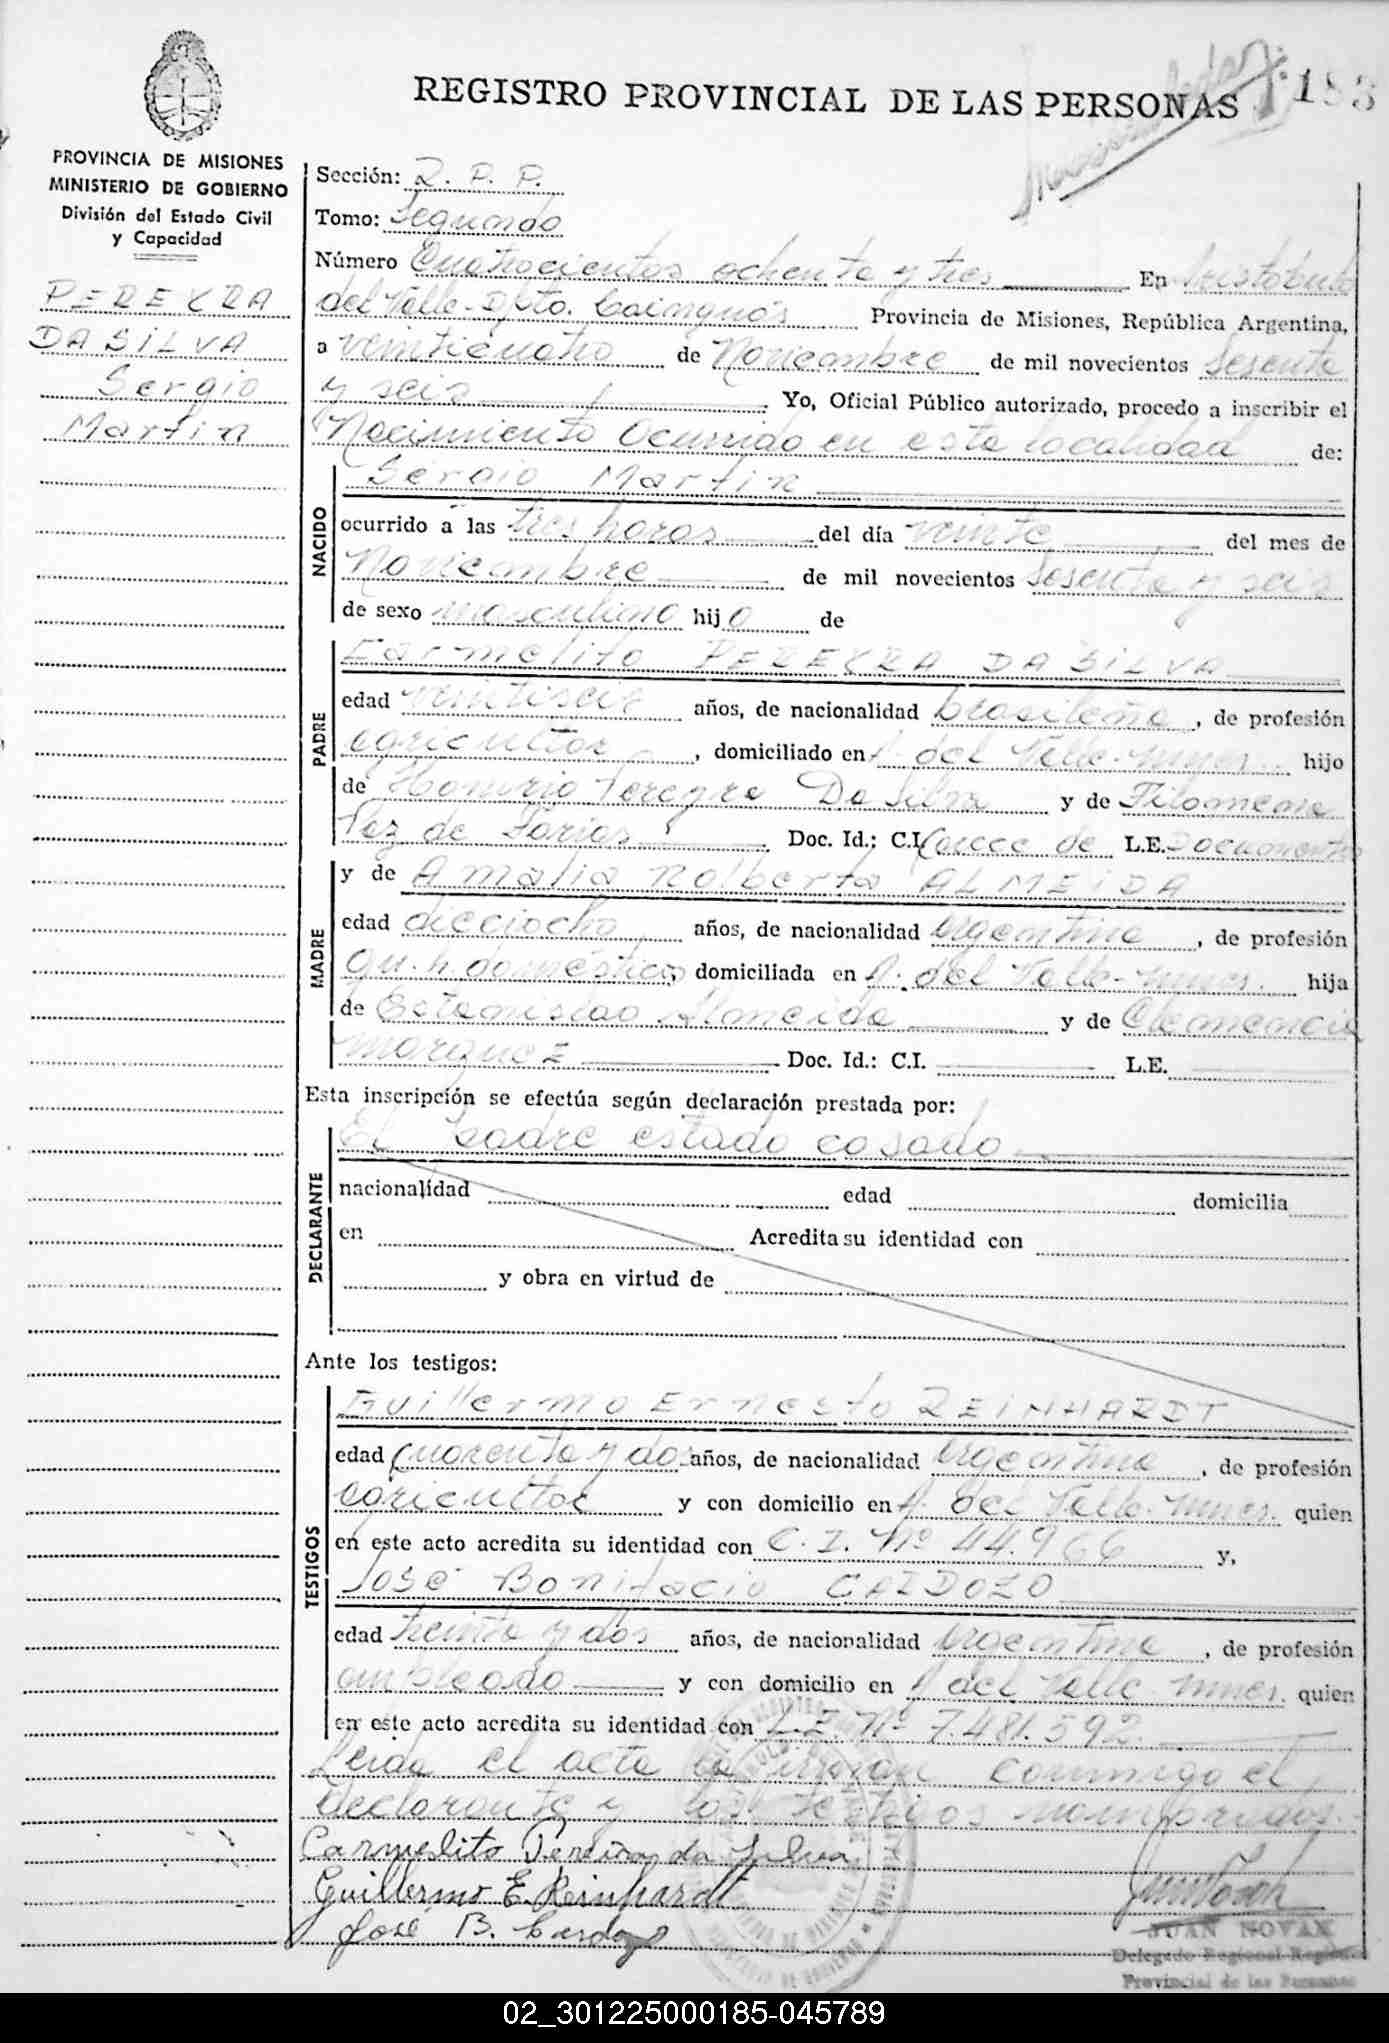 REGISTRO PROVINCIAL DE LAS PERSONAS
183
PROVINCIA DE MISIONES
MINISTERIO DE GOBIERNO
División del Estado Civil
y Capacidad
PEREYRA
DA SILVA
Sergio
Martin
Sección: 2. P. P.
Tomo: Segundo
Número Cuatrocientos ochenta y tres En Aristobulo
del Valle-Dpto. Cainguás Provincia de Misiones, República Argentina,
a veinticuatro de Noviembre de mil novecientos Sesenta
y seis Yo, Oficial Público autorizado, procedo a inscribir el
Nacimiento Ocurrido en esta localidad de:
NACIDO
Sergio Martin
ocurrido a las tres horas del día veinte del mes de
Noviembre de mil novecientos Sesenta y seis
de sexo masculino hijo de
PADRE
Carmelito PEREYRA DA SILVA
edad veintiseis años, de nacionalidad brasileña, de profesión
agricultor, domiciliado en A. del Valle-Mnes. hijo
de Honorio Pereyra Da Silva y de Filomena
Vaz de Farias Doc. Id.: C.I. Carece de L.E. Documentos
MADRE
y de Amalia Nolberta ALMEIDA
edad dieciocho años, de nacionalidad argentina, de profesión
qu. h. domésticos, domiciliada en A. del Valle-Mnes. hija
de Estanislao Almeida y de Clemencia
Marquez Doc. Id.: C.I. L.E.
Esta inscripción se efectúa según declaración prestada por:
DECLARANTE
El Padre estado casado
nacionalidad edad domicilia
en Acredita su identidad con
y obra en virtud de
Ante los testigos:
TESTIGOS
Guillermo Ernesto REINHARDT
edad cuarenta y dos años, de nacionalidad argentina, de profesión
agricultor y con domicilio en A. del Valle-Mnes. quien
en este acto acredita su identidad con C. I. Nº 44.966 y,
José Bonifacio CARDOZO
edad treinta y dos años, de nacionalidad argentina, de profesión
empleado y con domicilio en A. del Valle-Mnes. quien
en este acto acredita su identidad con L.E. Nº 7.481.592.
Leida el acta la firman conmigo el
declarante y los testigos nombrados.
Carmelito Pereira da Silva
Guillermo E. Reinhardt
José B. Cardozo
JUAN NOVAK
Delegado Regional Registro
Provincial de las Personas
02_301225000185-045789